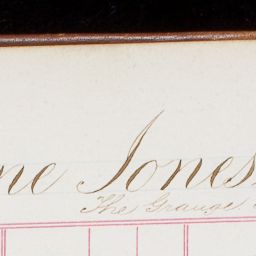 ne Jones
The Grange